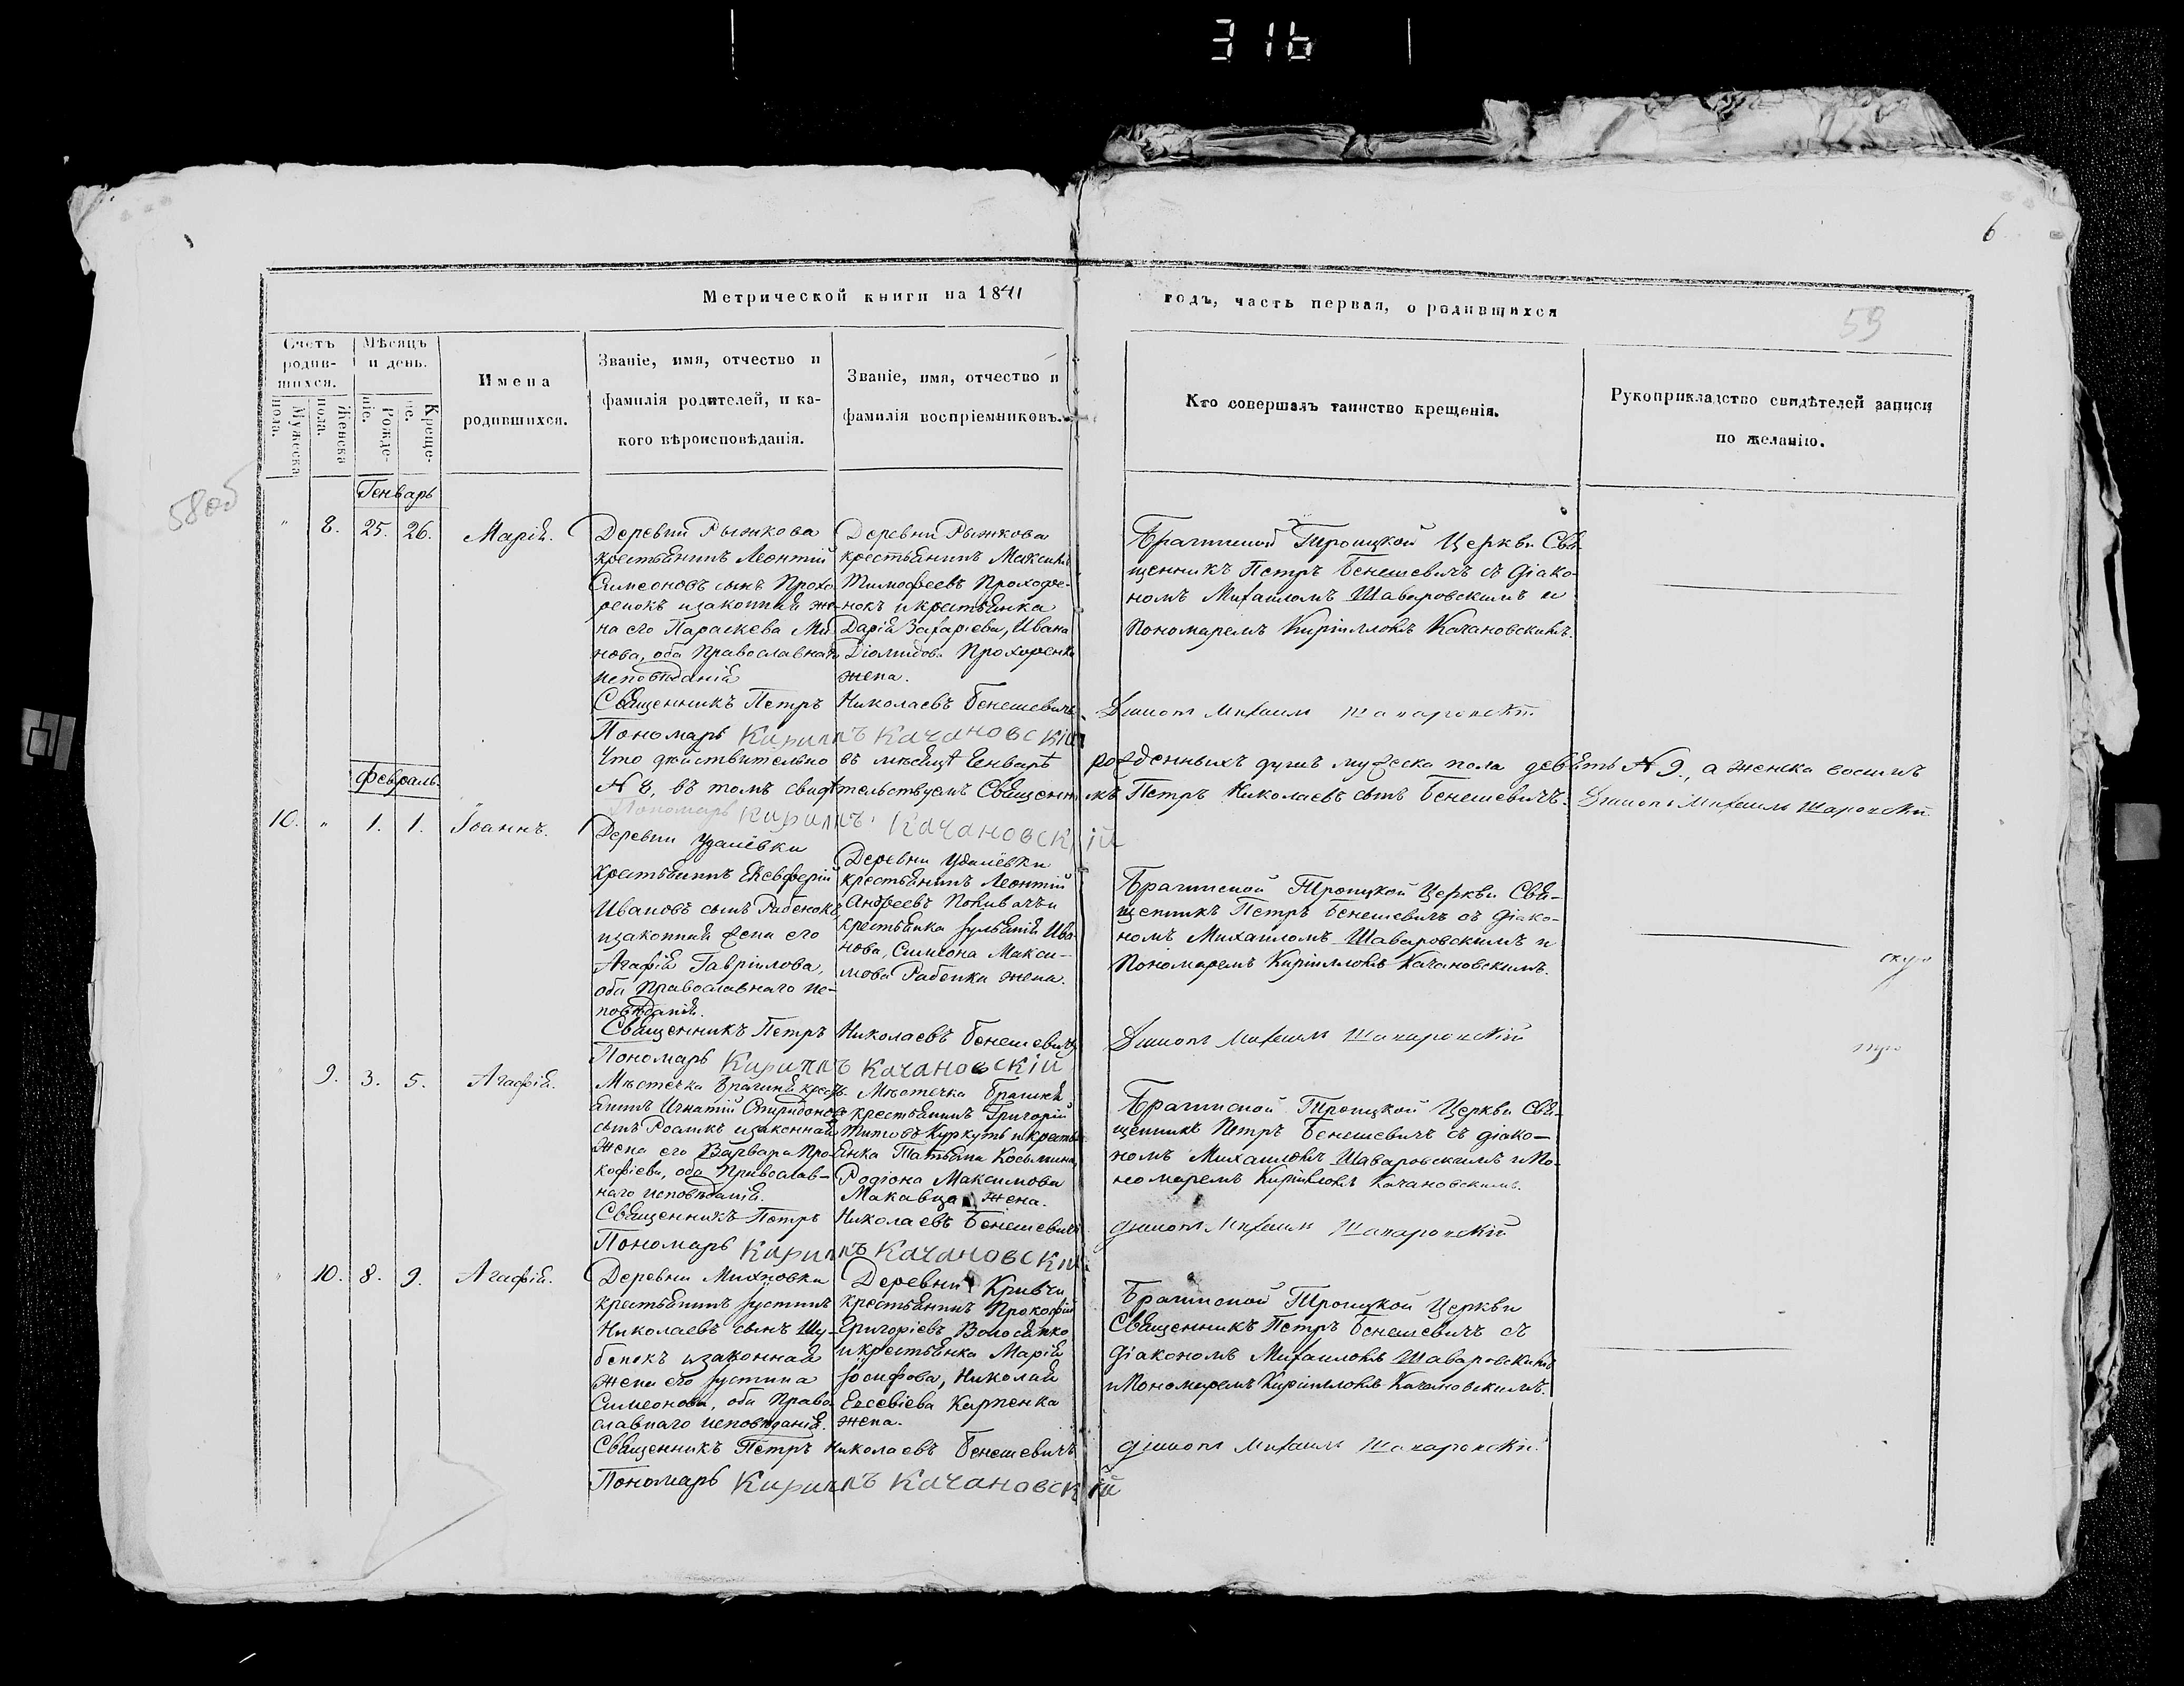 316
6
Метрической книги на 1841
годъ, часть первая, о родившихся
59
58об
Счетъ родившихся.
Мужеска пола.
Женска пола.
Мѣсяцъ и день.
Рожденіе.
Крещеніе.
Имена
родившихся.
Званіе, имя, отчество и
фамилія родителей, и ка-
кого вѣроисповѣданія.
Званіе, имя, отчество и
фамилія воспріемниковъ.
Кто совершалъ таинство крещенія.
Рукоприкладство свидѣтелей записи
по желанію.
Генварь
" 8. 25. 26. Марія.
Деревни Рыжкова
крестьянинъ Леонтій
Симеоновъ сынъ Прохо-
ренокъ изаконная же-
на его Параскева Ми
нова, оба Православнаго
исповѣданія
Деревни Рыжкова
крестьянинъ Максимъ
Тимофеевъ Прохоре-
нокъ икрестьянка
Дарія Захаріева, Ивана
Діомидова Прохоренка
жена.
Брагинской Троицкой Церкви Свя-
щенникъ Петръ Бенешевичъ съ діако-
номъ Михаиломъ Шаваровскимъ и
Пономаремъ Кирилломъ Качановскимъ.
Священникъ Петръ Николаевъ Бенешевичъ
Діаконъ Михаилъ Шаваровскій
Пономарь Кириллъ Качановскій
Что дѣйствительно въ мѣсяцѣ Генварѣ рожденныхъ душъ мужеска пола девять № 9., а женска восимъ
№ 8, въ томъ свидѣтельствуемъ Священникъ Петръ Николаевъ сынъ Бенешевичъ. Діаконъ Михаилъ
Пономарь Кириллъ Качановскій
Февраль.
10. " 1. 1. Іоаннъ.
Деревни Удалёвки
крестьянинъ Елевферій
Ивановъ сынъ Рабенокъ
изаконная жена его
Агафія Гавріилова,
оба Православнаго ис-
повѣданія.
Деревни Удалёвки
крестьянинъ Леонтій
Андреевъ и
крестьянка Іуліанія Ива-
нова, Симеона Макси-
мова Рабенка жена.
Брагинской Троицкой Церкви Свя-
щенникъ Петръ Бенешевичъ съ діако-
номъ Михаиломъ Шаваровскимъ и
Пономаремъ Кирилломъ Качановскимъ.
Священникъ Петръ Николаевъ Бенешевичъ
Діаконъ Михаилъ Шаваровскій
Пономарь Кириллъ Качановскій
" 9. 3. 5. Агафія.
Мѣстечка Брагиня кресть-
янинъ Игнатій Спиридоновъ
сынъ изаконная
жена его Варвара Про-
кофіева, оба Православ-
наго исповѣданія.
Мѣстечка Брагиня
крестьянинъ Григорій
Титовъ Куркуть икресть-
янка Татьяна Косьмина,
Родіона Максимова
жена.
Брагинской Троицкой Церкви Свя-
щенникъ Петръ Бенешевичъ съ діако-
номъ Михаиломъ Шаваровскимъ иПо-
номаремъ Кирилломъ Качановскимъ.
Священникъ Петръ Николаевъ Бенешевичъ
Діаконъ Михаилъ Шаваровскій
Пономарь Кириллъ Качановскій
" 10. 8. 9. Агафія.
Деревни Михновки
крестьянинъ Іустинъ
Николаевъ сынъ Шу-
бенокъ изаконная
жена его Іустина
Симеонова, оба Право-
славнаго исповѣданія.
Деревни Кривчи
крестьянинъ Прокофій
Григоріевъ Волосянко
икрестьянка Марія
Іосифова, Николая
Евсевіева Карпенка
жена.
Брагинской Троицкой Церкви
Священникъ Петръ Бенешевичъ съ
діакономъ Михаиломъ Шаваровскимъ
иПономаремъ Кирилломъ Качановскимъ.
Священникъ Петръ Николаевъ Бенешевичъ
Діаконъ Михаилъ Шаваровскій
Пономарь Кириллъ Качановскій